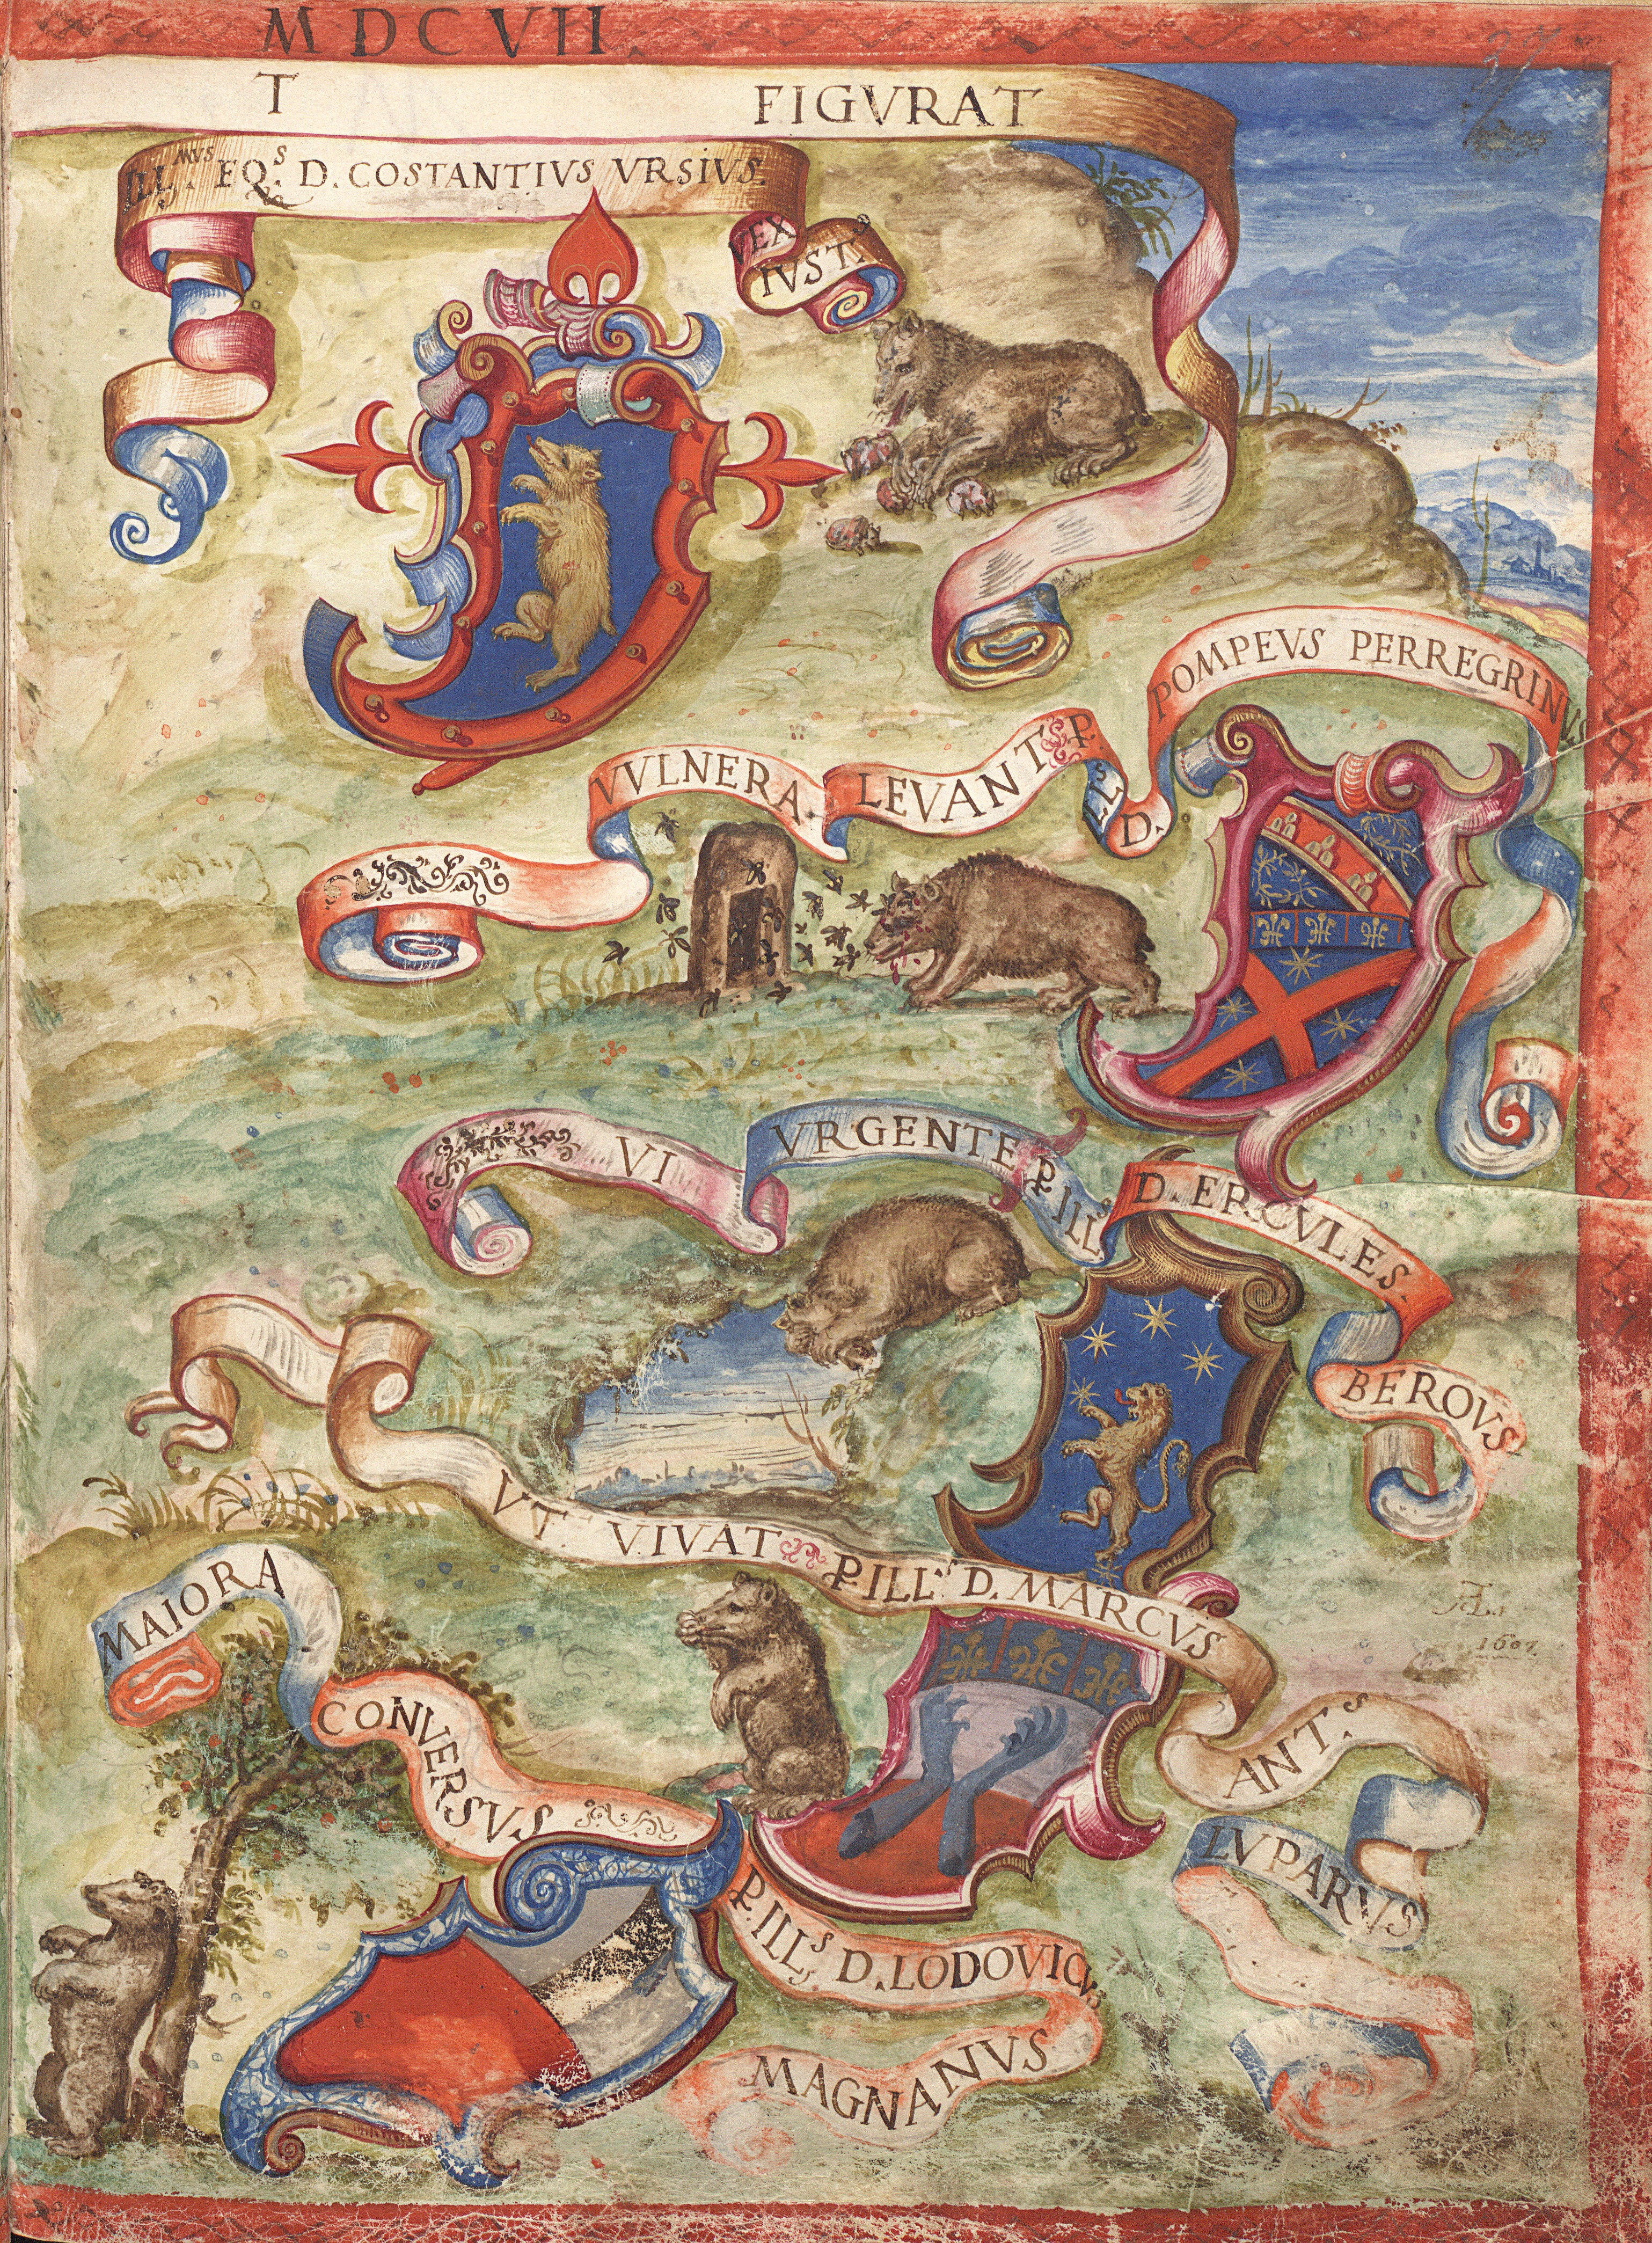 MDCVII
T FIGVRAT
ILL.MVS EQ.S D. COSTANTIVS VRSIVS.
VEX. IVST.S
VVLNERA. LEVANT P. ILL.S D. POMPEVS PERREGRINVS
VI VRGENTE P. ILL.S D. ERCVLES. BEROVS
VT VIVAT P. ILL.S D. MARCVS ANT.S LVPARVS
1607
MAIORA CONVERSVS P. ILL.S D. LODOVICVS MAGNANVS